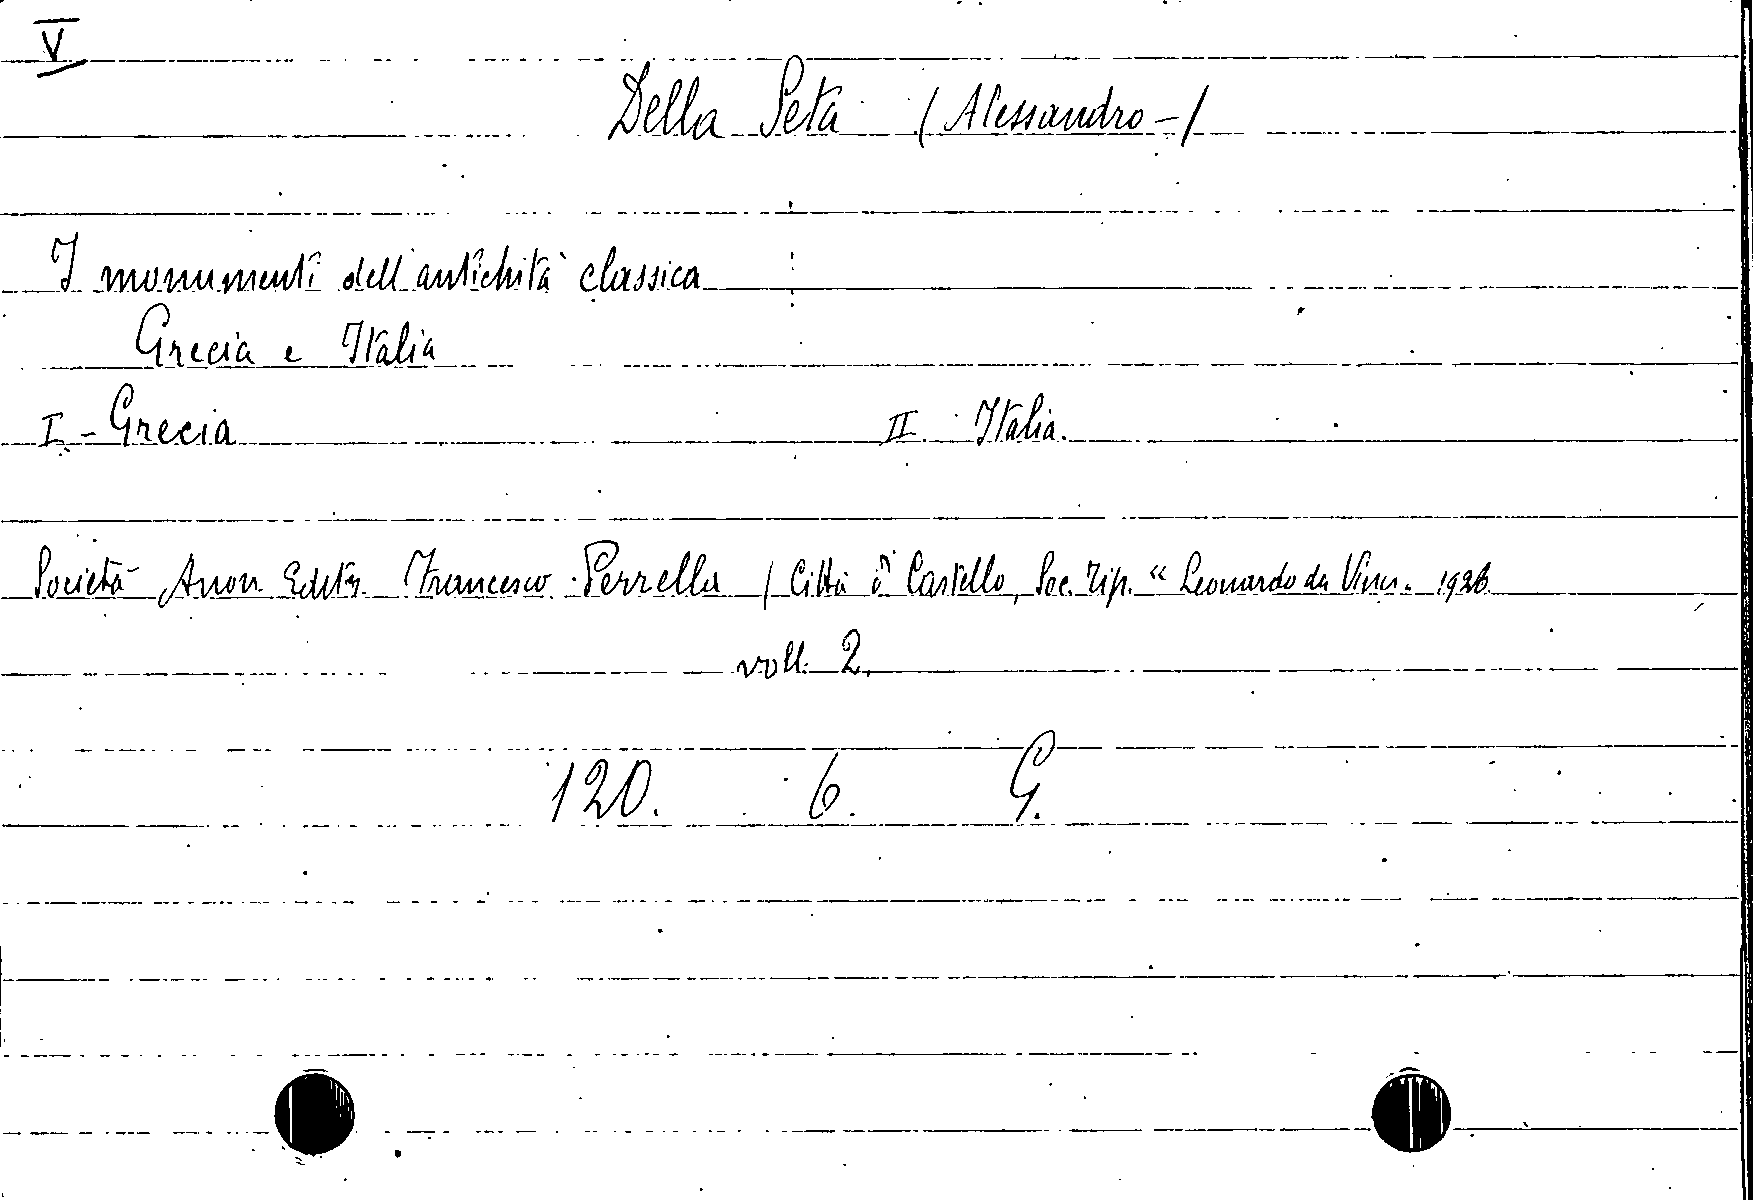 V
Della Seta (Alessandro-)
I monumenti dell'antichità classica
Grecia e Italia
I - Grecia II Italia.
Società Anon. Editr. Francesco Perrella (Città di Castello, Soc. Tip. "Leonardo da Vinci" 1926.
voll. 2.
120. 6. G.